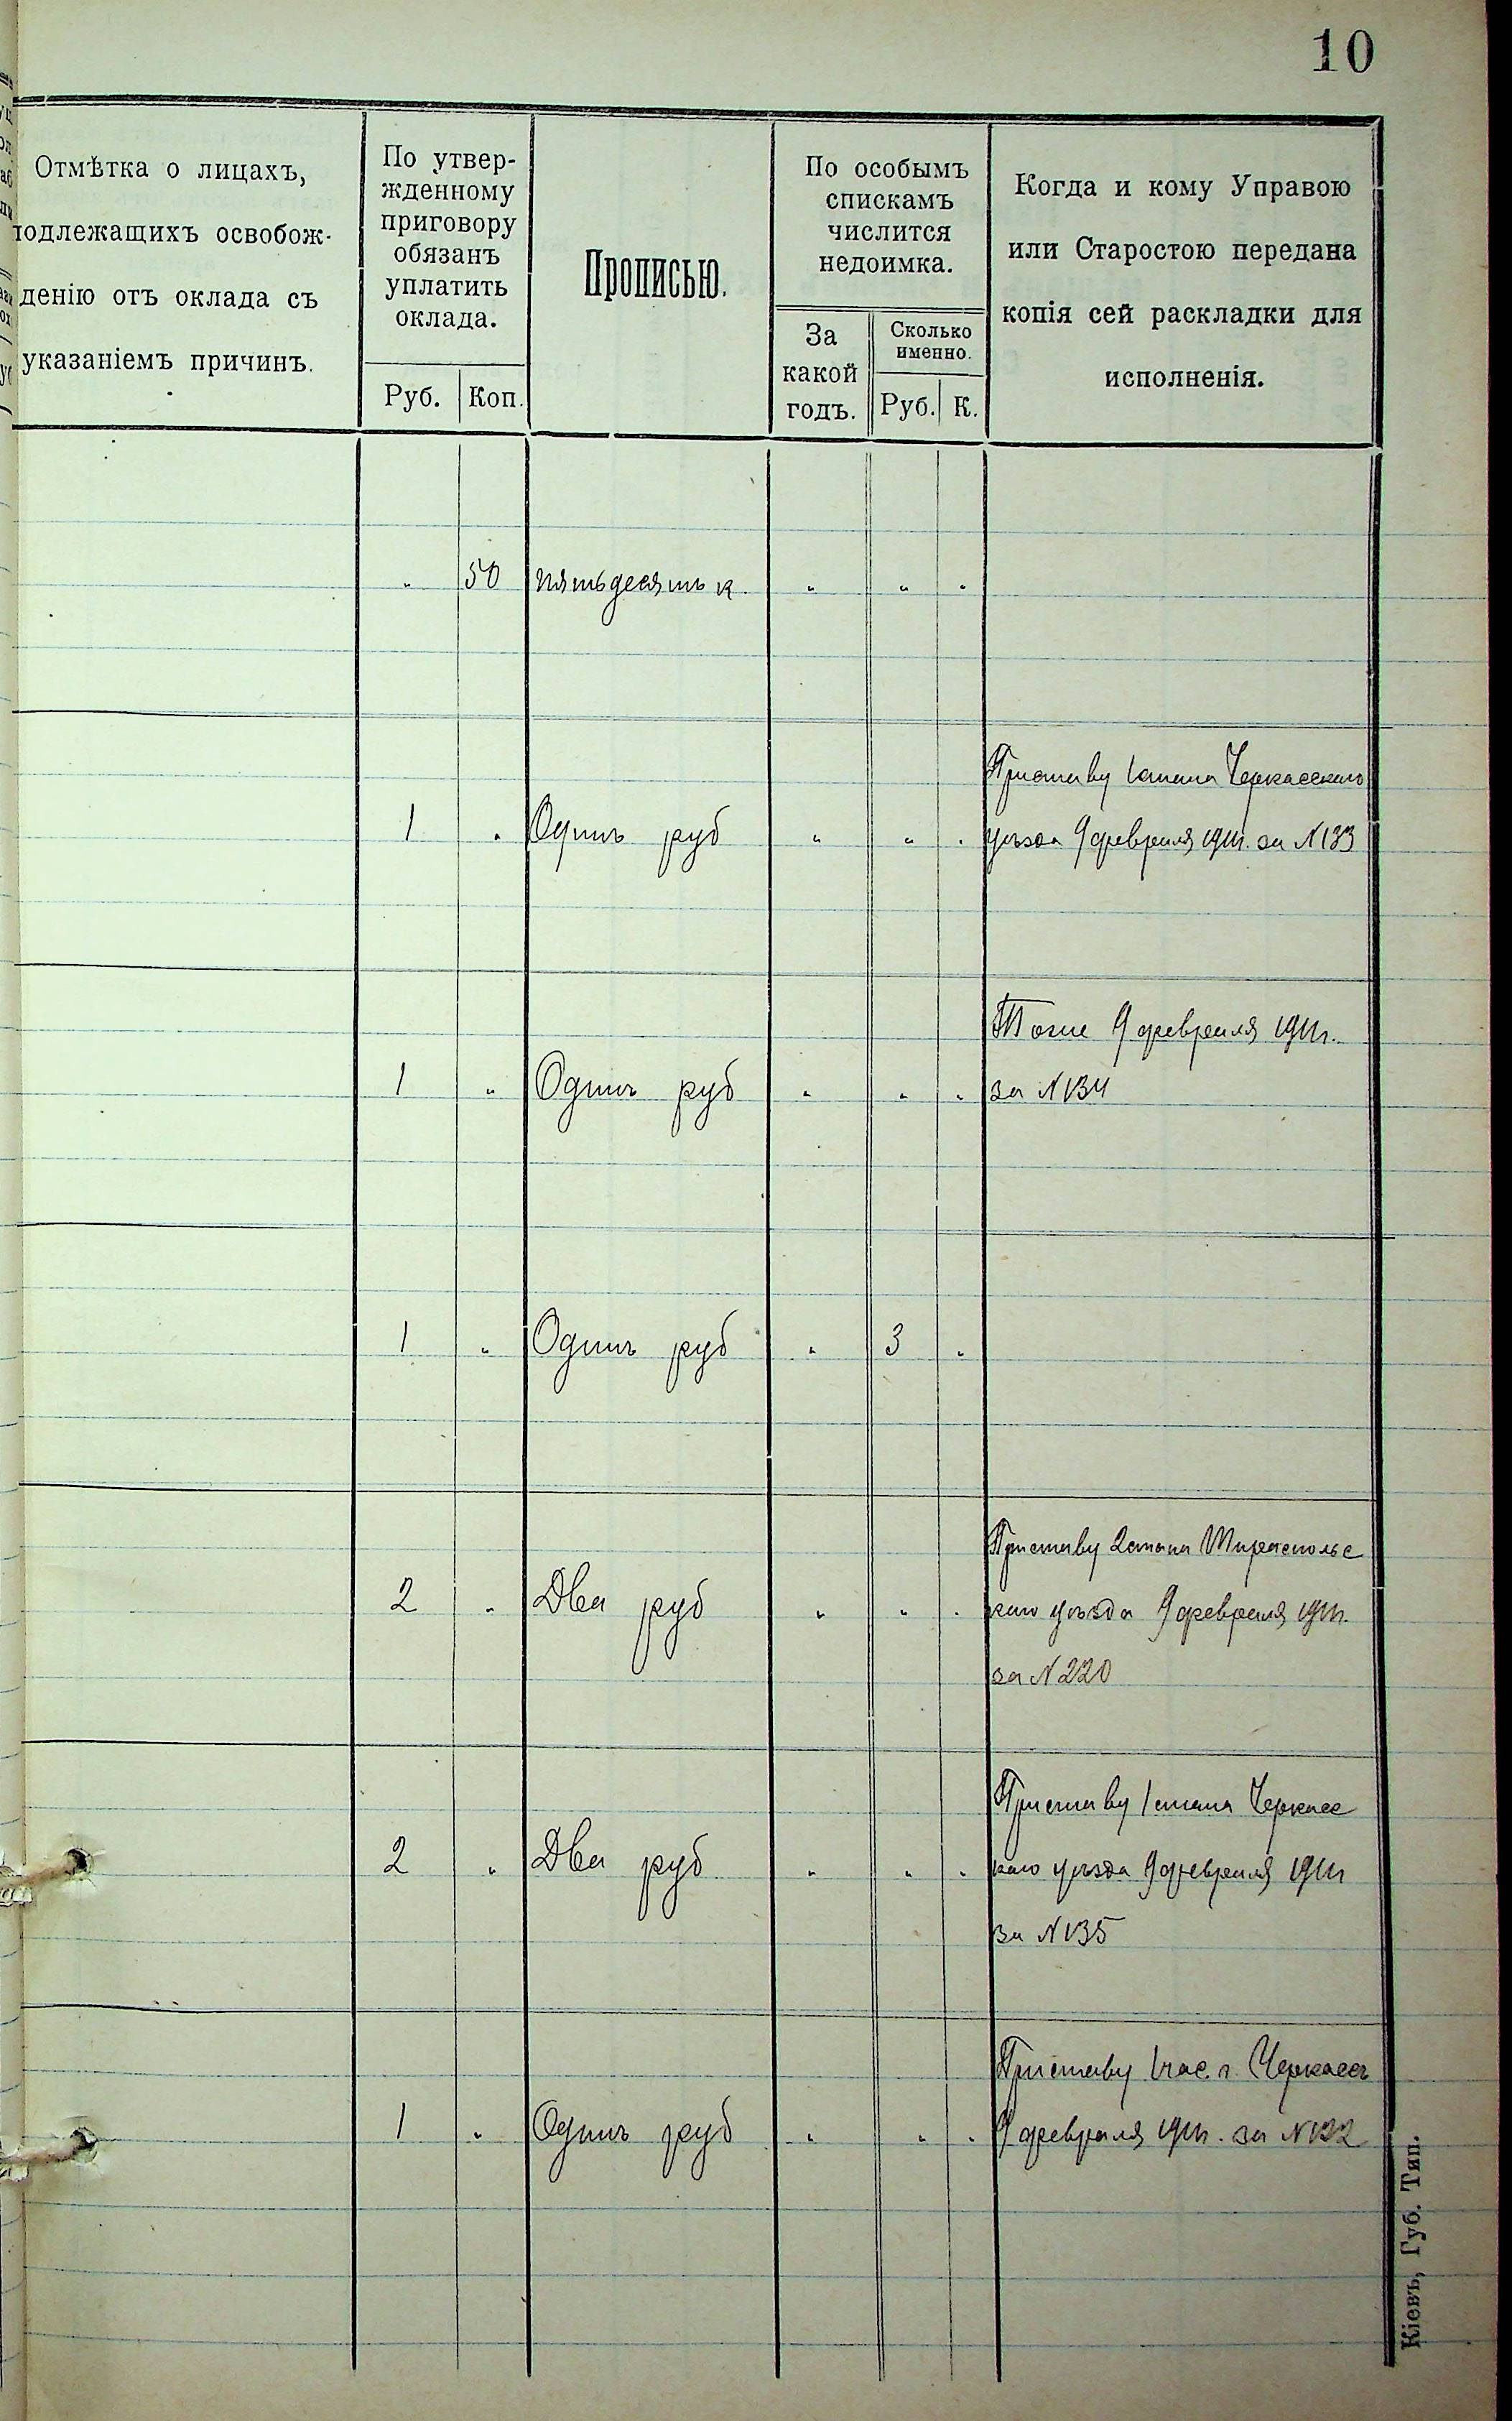 10
Отмѣтка о лицахъ,
подлежащихъ освобож-
денію отъ оклада съ
указаніемъ причинъ.
По утвер-
жденному
приговору
обязанъ
уплатить
оклада.
Руб. Коп.
Прописью.
По особымъ
спискамъ
числится
недоимка.
За
какой
годъ.
Сколько
именно.
Руб. К.
Когда и кому Управою
или Старостою передана
копія сей раскладки для
исполненія.
" 50 пятьдесять к. " " "
Приставу 1 стана Черкасскаго
1 " Одинъ руб " " " уѣзда 9 февраля 1911г. за N 133
Тоже 9 февраля 1911г.
1 " Одинъ руб " " " за N 134
1 " Одинъ руб " 3 "
Приставу 2 стана Тираспольс
2 " Два руб " " " каго уѣзда 9 февраля 1911г.
за N 220
Приставу 1 стана Черкасс
2 " Два руб " " " каго уѣзда 9 февраля 1911г
за N 135
Приставу 1 час. г. Черкассъ
1 " Одинъ руб " " " 9 февраля 1911г. за N 122
Кіевъ, Губ. Тип.